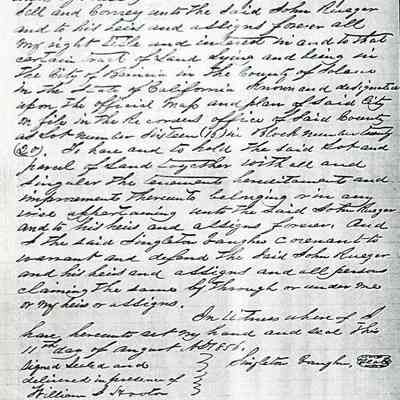 Sell and Convey unto the said John Rueger
and to his heirs and assigns forever all
my right title and interest in and to that
certain tract of Land lying and being in
the City of Benicia in the County of Solano
in the State of California Known and designated
upon the official Map and plan of said City
on file in the Recorders office of said County
as Lot number Sixteen (16) in Block number twenty
(20). To have and to hold the said Lot and
parcel of Land together with all and
singular the tenements hereditaments and
improvements thereunto belonging or in any
wise appertaining unto the said John Rueger
and to his heirs and assigns forever. And
I the said Singleton Vaughn Covenant to
warrant and defend the said John Rueger
and his heirs and assigns and all persons
claiming the same by through or under me
or my heirs or assigns.
In Witness where of I
have hereunto set my hand and seal this
day of August AD
Signed Sealed and
Singleton Vaughn Seal
delivered in presence of
William S